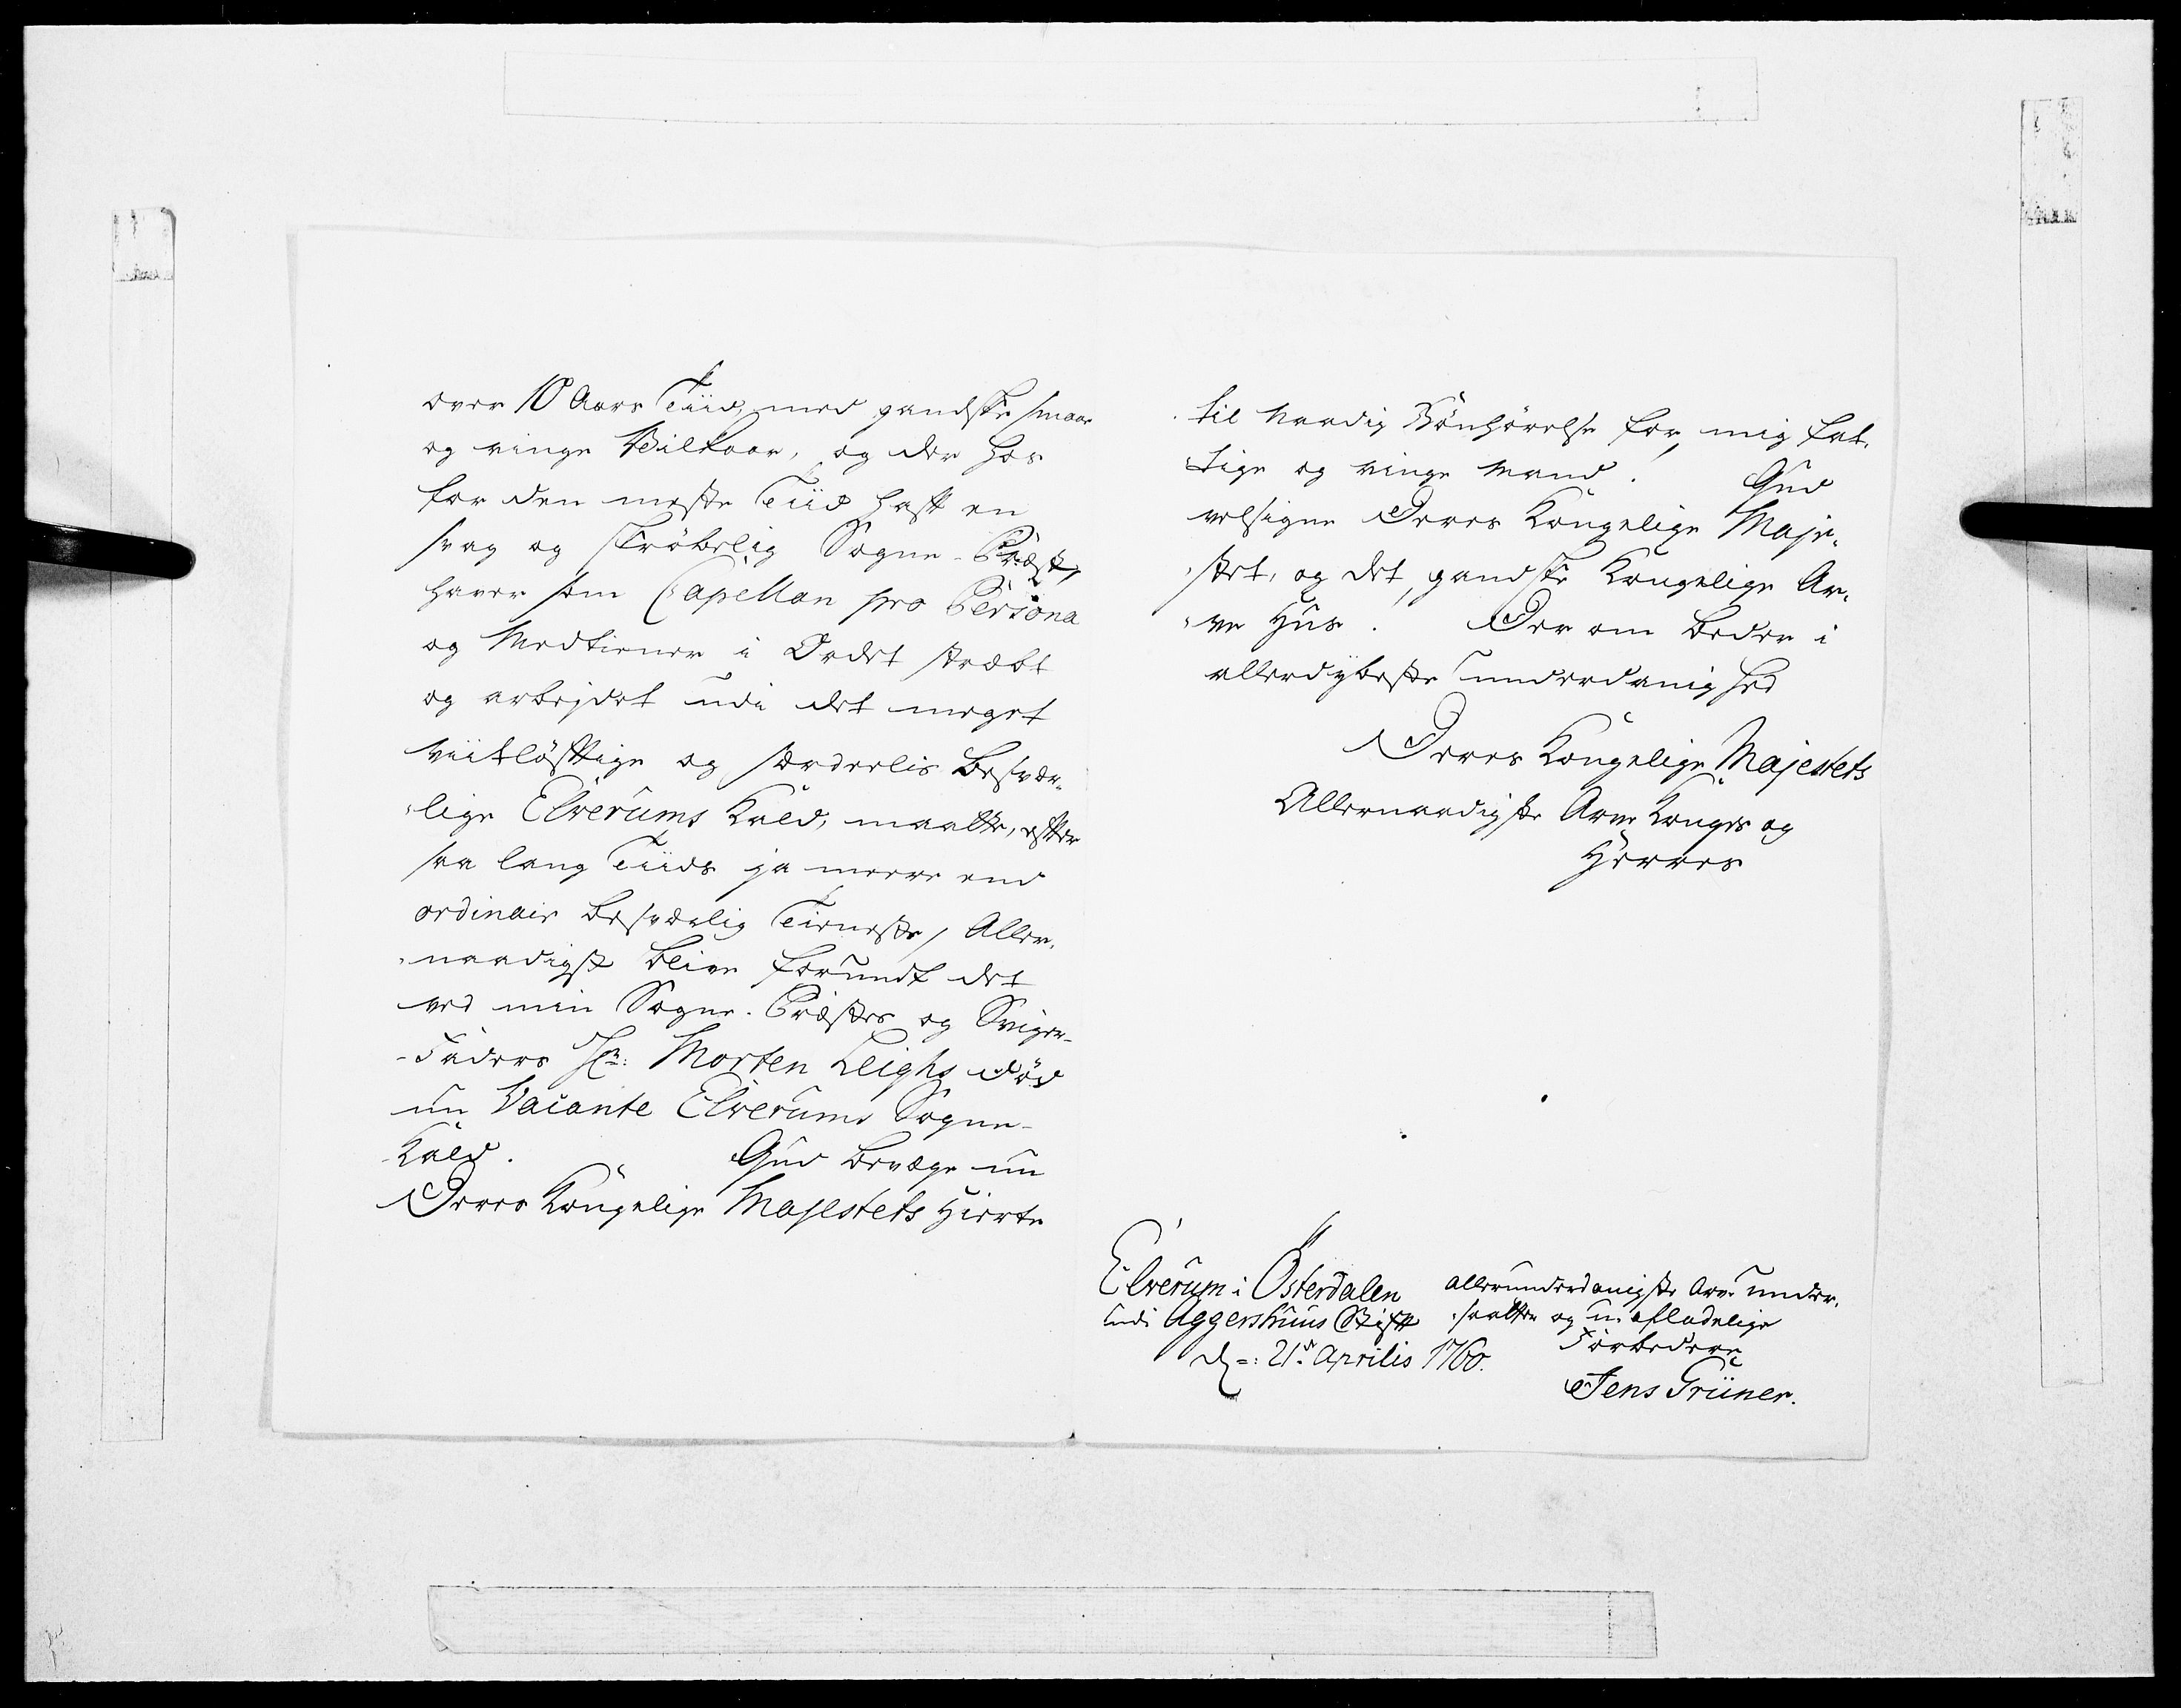 over 10 Aars Tiid, med gandske smaae
og ringe Vilkaar, og der hos
for den meste Tiid hafft en
svag og skröbelig Sogne-Præst,
haver som Capellan pro Persona
og Medtiener i Ordet stræbt
og arbejdet udi det meget
viitlöfftige og særdeelis besvær-
-lige Elverums Kald, maatte, effter
saa lang Tiids ja meere end
ordinair besværlig Tieneste, Aller-
-naadigst blive forundt det
ved min Sogne-Præstes og Sviger-
-Faders Hr: Morten Leighs död
nu Vacante Elverums Sogne-
-Kald. Gud bevæge nu
Deres Kongelige Majestets Hierte
til naadig Bönhörelse for mig fat-
-tige og ringe Mand! Gud
velsigne Deres Kongelige Maje-
-stet, og det gandske Kongelige Ar-
-ve Huus! Der om beder i
allerdybeste underdanighed
Deres Kongelige Majestets
Allernaadigste Arve Konges og
Herres
Elverum i Österdalen
udi Aggershuus Stifft
d: 21de Aprilis 1760.
allerunderdanigste Arve under-
-saatter og u-afladelige
Forbedere
Jens Grüner.